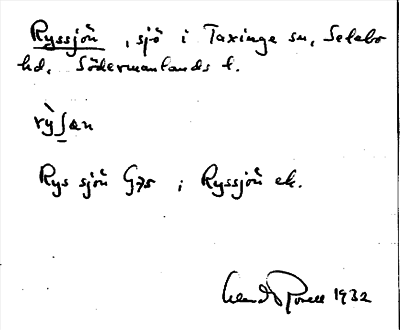 Ryssjön, sjö i Taxinge sn, Selebo
hd, Södermanlands l.
rỳʃæn
Rys sjön G75 ; Ryssjön ek.
1932